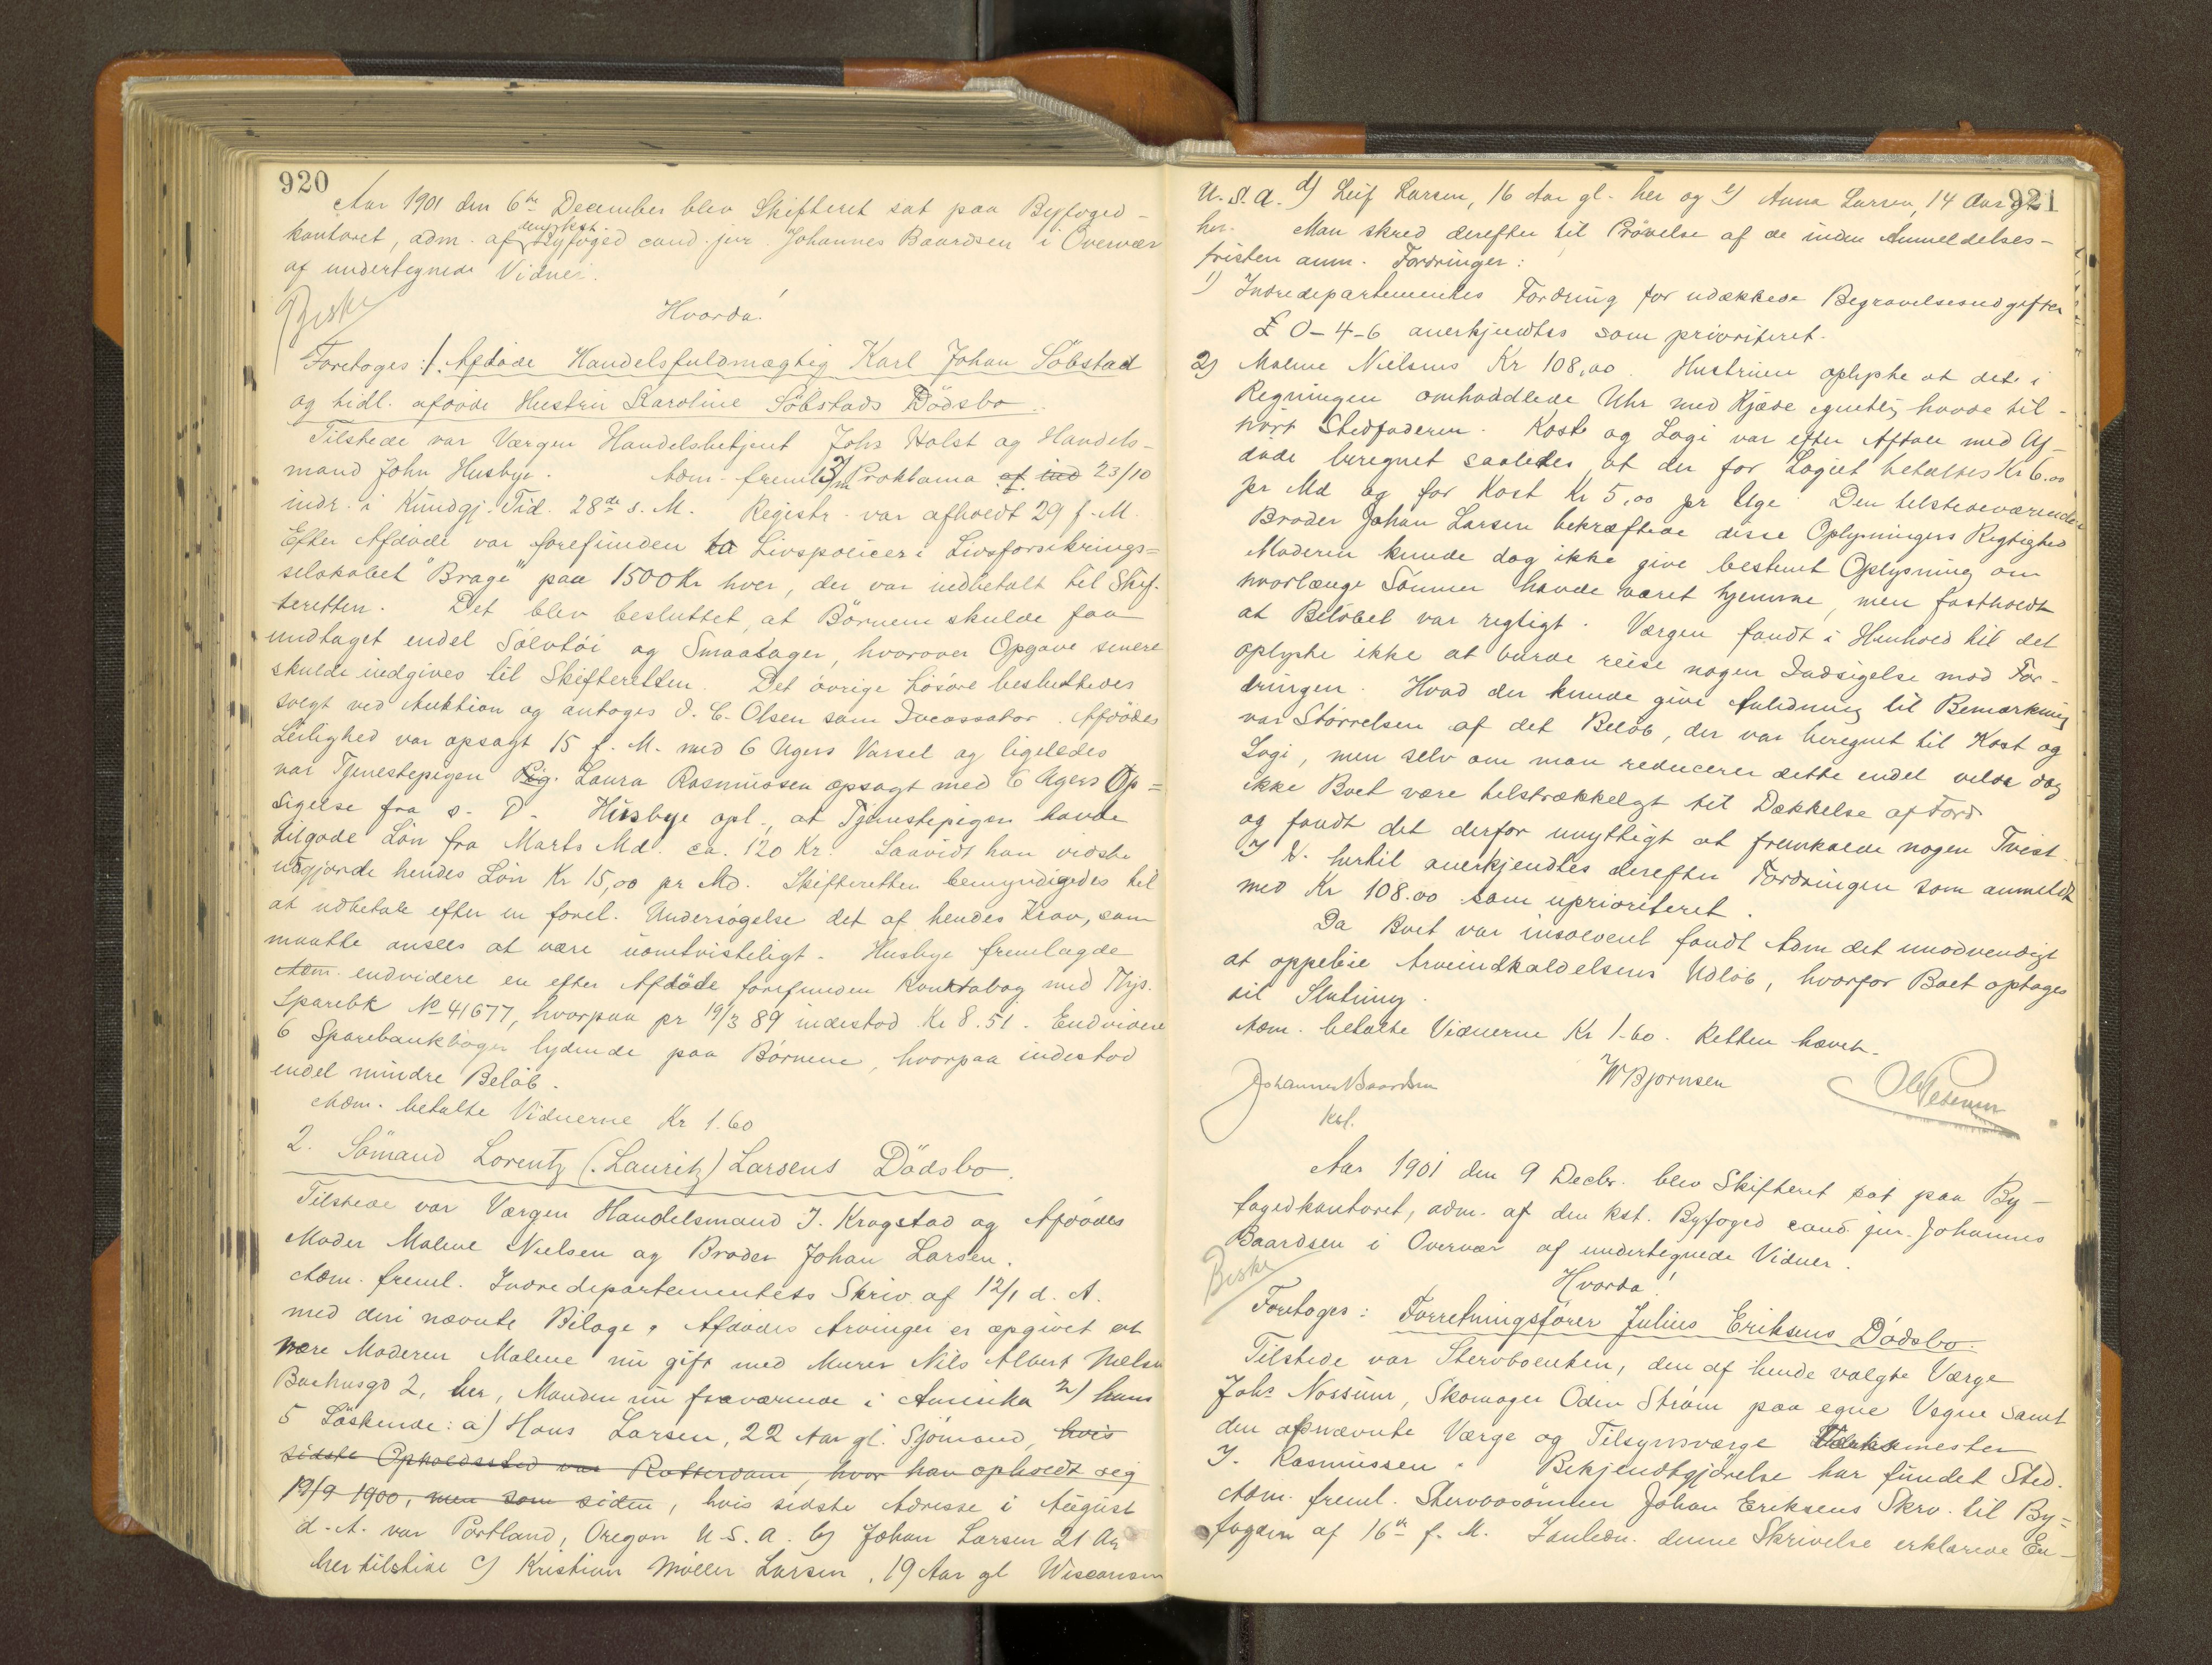 920
Aar 1901 den 6te December blev Skifteret sat paa Byfoged-
kontoret, adm. af den kst. Byfoged cand. jur. Johannes Baardsen i Overvær
af undertegnede Vidner.
Beskr
Hvorda!
Foretoges: 1. Afdøde Handelsfuldmægtig Karl Johan Söbstad
og tidl. afdøde Hustru Karoline Söbstads Dödsbo.
Tilstede var Værgen Handelsbetjent Johs Holst og Handels-
mand John Husbye. Adm. freml. Proklama af ind 23/10
indr. i Kundgj. Tid. 28de s. M. Registr. var afholdt 29 f. M.
Efter Afdøde var forefunden to Livspolicer i Livsforsikrings-
selskabet "Brage" paa 1500 Kr hver, der var indbetalt til Skif-
teretten. Det blev besluttet, at Börnene skulde faa
undtaget endel Sölvtöi og Smaasager, hvorover Opgave senere
skulde indgives til Skifteretten. Det övrige Lösöre besluttedes
solgt ved Auktion og antoges O. C. Olsen som Incassator. Afdödes
Leilighed var opsagt 15 f. M. med 6 Ugers Varsel og ligeledes
var Tjenestepigen Pig. Laura Rasmussen opsagt med 6 Ugers Op=
sigelse fra s. D. Husbye opl., at Tjenestepigen havde
tilgode Lön fra Marts Md. ca. 120 Kr. Saavidt han vidste
udgjorde hendes Lön Kr 15,00 pr Md. Skifteretten bemyndigedes til
at udbetale efter en forel. Undersögelse det af hendes Krav, som
maatte ansees at være uomtvisteligt. Husbye fremlagde
Adm. endvidere en efter Afdöde forefunden Kontrabog med Thjs.
Sparebk No 41677, hvorpaa pr 19/3 89 indestod Kr 8.51. Endvidere
6 Sparebankböger lydende paa Börnene, hvorpaa indestod
endel mindre Belöb.
Adm. betalte Vidnerne Kr 1.60
2. Sömand Lorentz (Lauritz) Larsens Dödsbo.
Tilstede var Værgen Handelsmand J. Krogstad og Afdödes
Moder Malene Nielsen og Broder Johan Larsen.
Adm. freml. Indredepartementets Skriv. af 12/1 d. A.
med deri nævnte Bilage. Afdödes Arvinger er opgivet at
være Moderen Malene nu gift med Murer Nils Albert Nielsen
Bachusgd 2, her, Manden nu fraværende i Amerika 2) hans
5 Söskende: a) Hans Larsen, 22 Aar gl. Sjömand, hvis
sidste Opholdssted var Rotterdam, hvor han opholdt sig
19/9 1900, men som siden, hvis sidste Adresse i August
d. A. var Portland, Oregon U.S.A. b) Johan Larsen 21 Aar
her tilstede c) Kristian Möller Larsen, 19 Aar gl Wisconsin
921
U.S.A. d) Leif Larsen, 16 Aar gl. her og e) Anna Larsen, 14 Aar gl.
her. Man skred derefter til Prövelse af de inden Anmeldelses-
fristen anm. Fordringer:
1) Indredepartementes Fordring for udækkede Begravelsesudgifter
£ 0-4-6 anerkjendtes som prioriteret.
2) Malene Nielsens Kr 108,00. Hustruen oplyste at det i
Regningen omhandlede Uhr med Kjæde egentlig havde til-
hört Stedfaderen. Kost og Logi var efter Aftale med Af-
døde beregnet saaledes, at der for Logiet betaltes Kr 6.00
pr Md og for Kost Kr 5,00 pr Uge. Den tilstedeværende
Broder Johan Larsen bekræftede disse Oplysningers Rigtighed
Moderen kunde dog ikke give bestemt Oplysning om
hvorlænge Sönnen havde været hjemme, men fastholdt
at Belöbet var rigtigt. Værgen fandt i Henhold til det
oplyste ikke at burde reise nogen Indsigelse mod For-
dringen. Hvad der kunde give Anledning til Bemærkning
var Störrelsen af det Belöb, der var beregnet til Kost og
Logi, men selv om man reducerer dette endel vilde dog
ikke Boet være tilstrækkeligt til Dækkelse af Ford.
og fandt det derfor unyttigt at fremkalde nogen Tvist.
I H. hertil anerkjendtes derefter Fordringen som anmeldt
med Kr 108.00 som uprioriteret.
Da Boet var insolvent fandt Adm det unödvendigt
at oppebie Arveindkaldelsens Udlöb, hvorfor Boet optoges
til Slutning.
Adm. betalte Vidnerne Kr 1.60. Retten hævet.
Johannes Baardsen
kst.
W Bjørnsen
Ole Petersen
Aar 1901 den 9 Decbr. blev Skifteret sat paa By-
fogedkontoret, adm. af den kst. Byfoged cand. jur. Johannes
Baardsen i Overvær af undertegnede Vidner.
Beskr
Hvorda!
Foretoges: Forretningsförer Julius Eriksens Dödsbo.
Tilstede var Stervboenken, den af hende valgte Værge
Johs Nossum, Skomager Odin Ström paa egne Vegne samt
den opnævnte Værge og Tilsynsværge Værksmester
J. Rasmussen. Bekjendtgjörelse har fundet Sted.
Adm. freml. Stervbosönnen Johan Eriksens Skrv. til By=
fogden af 16de f. M. I Anledn. denne Skrivelse erklærede En-